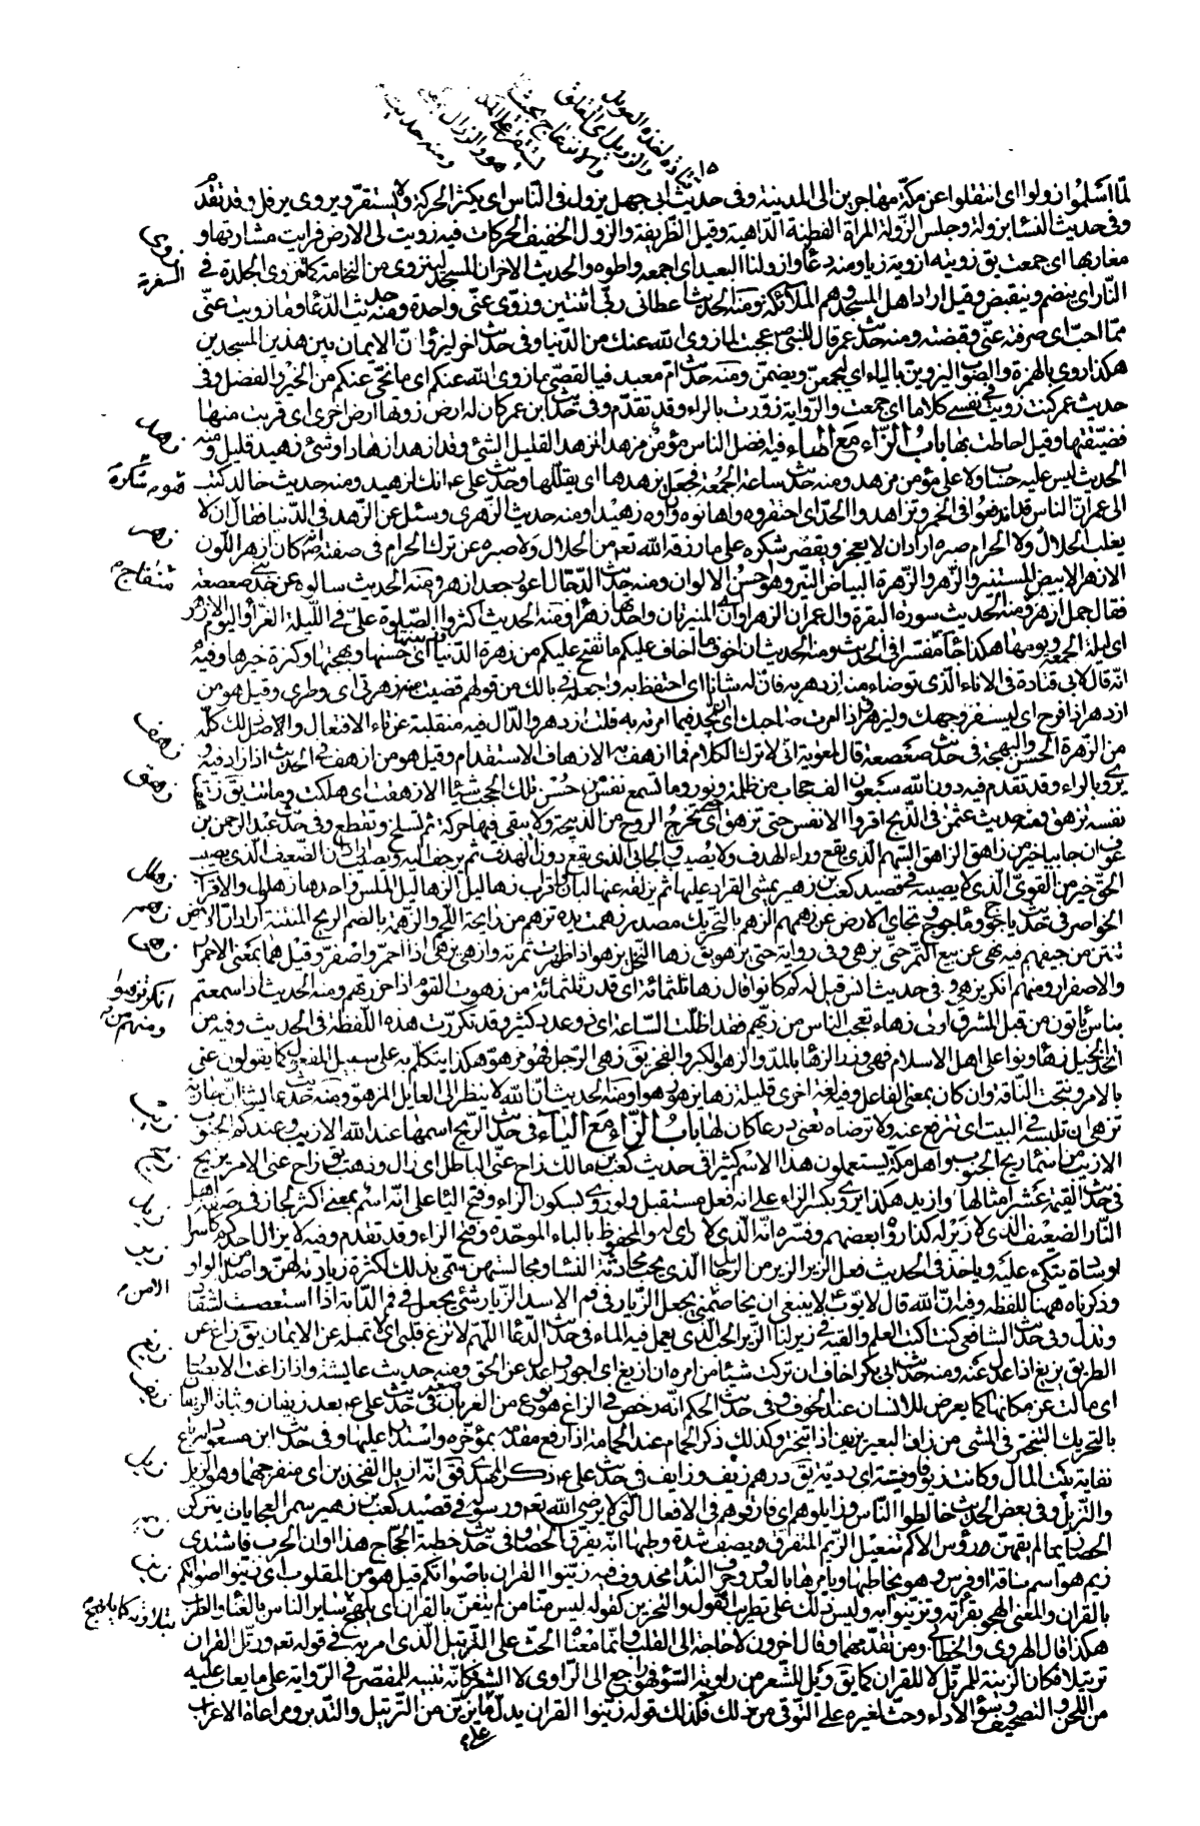 لمّا اسلموا زولوا اى انتقلوا عن مكّة مهاجرين الى المدينة وفى حديث ابى جهل يزول فى النّاس اى يكثر الحركة ولا يستقر ويروى يرفل وقد تقدّم
وفى حديث النسا بزولة وجلس الزّولة المراة الفطنة الدّاهية وقيل الظّريفة والزول الخفيف الحركات فيه زويت لى الارض فرايت مشارقها و
زوى
مغاربها اى جمعت يق زويته ازويه زيا ومنه دعا وازو لنا البعيد اى اجمعه واطوه والحديث الاخر ان المسجد لينزوى من النخامة كما تزوى الجلدة فى
النّار اى ينضم وينقبض وقيل اراد اهل المسجد وهم الملائكة ومنه الحديث اعطانى ربّى اثنتين وزوى عنّى واحدة ومنه حديث الدّعا وما زويت عنّى
ممّا احبّ اى صرفته عنّى وقبضته ومنه حديث عمر قال للنبىّ عجبت لما زوى الله عنك من الدّنيا وفى حديث اخر ليزوأنّ الايمان بين هذين المسجدين
هكذا روى بالهمزة والصّواب ليزوينّ بالياء اى ليجمعنّ ويضمنّ ومنه حديث ام معبد فيا لقصىّ ما زوى الله عنكم اى ما نحّى عنكم من الخير والفضل وفى
حديث عمر كنت زويت فى نفسى كلاما اى جمعت والرّواية زوّرت بالراء وقد تقدّم وفى حديث ابن عمر كان له ارض زوتها ارض اخرى اى قربت منها
فضيّقتها وقيل احاطت بها باب الزّاء مع الهاء فيه افضل الناس مؤمن مزهد المزهد القليل الشئ وقد ازهد ازهادا وشئ زهيد قليل ومنه
زهد
الحديث ليس عليه حساب ولا على مؤمن مزهد ومنه حديث ساعة الجمعة فجعل يزهدها اى يقللها وحديث على ع انك لزهيد ومنه حديث خالد كتب
الى عمر انّ الناس قد اندفعوا فى الخمر وتزاهدوا الحدّ اى احتقروه واهانوه وراوه زهيدا ومنه حديث الزّهرى وسئل عن الزّهد فى الدّنيا فقال ان لا
زهر
يغلب الحلال شكره ولا الحرام صبره اراد ان لا يعجز ويقصر شكره على ما رزقه الله تعم من الحلال ولا صبره عن ترك الحرام فى صفته كان ازهر اللّون
الازهر الابيض المستنير والزّهر والزّهرة البياض النّير وهو احسن الالوان ومنه حديث الدّجّال اعور جعد ازهر ومنه الحديث سالوه عن جدّ بنى عامر بن صعصعة
فقال جمل ازهر ومنه الحديث سورة البقرة وال عمران الزهراوان اى المنيرتان واحدتها زهرا ومنه الحديث اكثروا الصّلوة علىّ فى اللّيلة الغرّا واليوم الازهر
اى ليلة الجمعة ويومها هكذا جاء مفسّرا فى الحديث ومنه الحديث ان اخوف ما اخاف عليكم ما يفتح عليكم من زهرة الدّنيا وزينتها اى حسنها وبهجتها وكثرة خيرها وفيه
انّه قال لابى قتادة فى الاناء الّذى توضاء منه ازدهر به فانّ له شانا اى احتفظ به واجعله فى بالك من قولهم قضيت منه زهرتى اى وطرى وقيل هو من
ازدهر اذا فرح اى ليسفر وجهك وليزهر واذا امرت صاحبك ان يجد فيما امرته به قلت له ازدهر والدّال فيه منقلبة عن تاء الافتعال والاصل ذلك كلّه
زهف
من الزّهرة الحسن والبهجة فى حديث صعصعة قال لمعوية انّى لاترك الكلام فما ازهف به الازهاف الاستقدام وقيل هو من ازهف فى الحديث اذا زاد فيه و
زهق
يروى بالراء وقد تقدم فيه دون الله سبعون الف حجاب من ظلمة ونور وما تسمع نفس من حسّ تلك الحجب شيئا الا زهقت اى هلكت وماتت يق زهقت
نفسه تزهق ومنه حديث عثمن فى الذّبح اقروا الانفس حتى تزهق اى حتى تخرج الروح من الذبيحة ولا يبقى فيها حركة ثم تسلخ وتقطع وفى حديث عبد الرحمن بن
عوف ان حابيا خير من زاهق الزاهق السّهم الّذى يقع وراء الهدف ولا يصيب والحابى الّذى يقع دون الهدف ثم يزحف اليه ويصيب اراد ان الضّعيف الّذى يصيب
زهل
الحقّ خير من القوىّ الّذى لا يصيبه فى قصيد كعب بن زهير يمشى القراد عليها ثم يزلقه عنها لبان واقراب زهاليل الزهاليل الملس واحدها زهلول والاقراب
زهم
الخواصر فى حديث ياجوج وماجوج وتجاى الارض عن زهمهم الزهم بالتحريك مصدر زهمت يده تزهم من رايحة اللّحم والزّهمة بالضم الريح المنتنة اراد انّ الارض
زها
تنتن من جيفهم فيه نهى عن بيع الثّمر حتّى يزهى وفى رواية حتى يزهو يق زها النّخل يزهو اذا ظهرت ثمرته وازهى يزهى اذا احمرّ واصفرّ وقيل هما بمعنى الاحمرار
والاصفرار ومنهم من انكر يزهو وفى حديث انس قيل له كم كانوا قال زها ثلثمائة اى قدر ثلثمائة من زهوت القوم اذا حزرتهم ومنه الحديث اذا سمعتم
بناس ياتون من قبل المشرق اولى زهاء يعجب الناس من زيّهم فقد اظلّت السّاعة اى ذوى عدد كثير وقد تكررت هذه اللّفظة فى الحديث وفيه من
اتخذ الخيل زهاء ونواء على اهل الاسلام فهى وزر الزهاء بالمدّ والزهو الكبر والفخر يق زهى الرّجل فهو مزهوّ هكذا يتكلّم به على سبيل المفعول كما يقولون عنى
بالامر ونتجت النّاقة وان كان بمعنى الفاعل وفيه لغة اخرى قليلة زها يزهو زهوا ومنه الحديث انّ الله لا ينظر الى العايل المزهوّ ومنه حديث عايشة انّ جاريته
زيب
تزهى ان تلبسه فى البيت اى تترفع عنه ولا ترضاه تعنى درعا كان لها باب الزّاء مع الياء فى حديث الرّيح اسمها عند الله الازيب وعندكم الجنوب
زيح
الازيب من اسماء ريح الجنوب واهل مكّة يستعملون هذا الاسم كثيرا فى حديث كعب بن مالك زاح عنّى الباطل اى زال وذهب يق زاح عنى الامر يزيح
زيد
فى حديث القيمة عشر امثالها وازيد هكذا يروى بكسر الزاء على انه فعل مستقبل ولو روى بسكون الزاء وفتح اليا على انّه اسم بمعنى اكثر لجاز فى صفة اهل
زير
النّار الضعيف الذى لا زير له كذا رواه بعضهم وفسّره انّه الّذى لا راى له والمحفوظ بالباء الموحّدة وفتح الزاء وقد تقدم وفيه لا يزال احدكم كاسرا
وساده يتّكئ عليه وياخذ فى الحديث فعل الزير الزير من الرجال الّذى يحب محادثة النسا ومجالستهن سمّى بذلك لكثرة زيارته لهنّ واصل من الواو
وذكرناه ههنا للفظه وفيه انّ الله قال لايّوب لا ينبغى ان يخاصمنى الا من يجعل الزّيار فى فم الاسد الزّيار شئ يجعل فى فم الدّابة اذا استصعبت لتنقاد
وتذلّ وفى حديث الشافعى كنت اكتب العلم والقيه فى زير لنا الزّير الحبّ الّذى يعمل فيه الماء فى حديث الدّعا اللّهم لا تزغ قلبى اى لا تمله عن الايمان يق زاغ عن
زيغ
الطريق يزيغ اذا عدل عنه ومنه حديث ابى بكر اخاف ان تركت شيئا من امره ان ازيغ اى اجور واعدل عن الحق ومنه حديث عايشة واذ زاغت الابصار
زيف
اى مالت عن مكانها كما يعرض للانسان عند الخوف وفى حديث الحكم انّه رخص فى الزاغ هو نوع من الغربان فى حديث على ع بعد زيفان وثباته الزيفان
بالتحريك التبختر فى المشى من زاف البعير يزيف اذا تبختر وكذلك ذكر الحمام عند الحمامة اذا رفع مقدّمه بمؤخّره واستدار عليها وفى حديث ابن مسعود انّه باع
زيل
نفاية بيت المال وكانت زيوفا وقسيّة اى رديّة يق درهم زيف وزايف فى حديث على ع ذكر المهدى فق انّه ازيل الفخذين اى منفرجهما وهو الزيل
والتّزيل وفى بعض الحديث خالطوا النّاس وزايلوهم اى فارقوهم فى الافعال الّتى لا يرضى الله تعم ورسوله فى قصيد كعب بن زهير سمر العجايات يتركن
زيم
الحصا زيما لم يقهنّ رؤس الاكم تنعيل الزّيم المتفرق يصف شدة وطئها انّه يفرّق الحصا وفى حديث خطبة الحجّاج هذا اوان الحرب فاشتدى
زين
زيم هو اسم ناقة او فرس وهو يخاطبها ويامرها بالعدو وحرف النّدا محذوف فيه زيّنوا القران باصواتكم قيل هو من المقلوب اى زيّنوا اصواتكم
بالقران والمعنى الهجوا بقراته وتزيّنوا به وليس ذلك على تطريب القول والتحزين كقوله ليس منّا من لم يتغنّ بالقران اى يلهج بتلاوته كما يلهج ساير الناس بالغنا والطرب
هكذا قال الهروى والخطابى ومن تقدّمهما وقال اخرون لا حاجة الى القلب وانّما معناه الحثّ على التّرتيل الّذى امر به فى قوله تعم ورتّل القران
ترتيلا فكان الزينة للمرتّل لا للقران كما يق ويل للشّعر من راوية السّوء فهو راجع الى الرّاوى لا الشعر فكانّه تنبيه للمقصّر فى الرّواية على ما يعاب عليه
من اللحن والتصحيف وسوء الاداء وحثّ لغيره على التّوقى من ذلك فكذلك قوله زيّنوا القران يدلّ على ما يزيّن من التّرتيل والتّدبر ومراعاة الاعراب